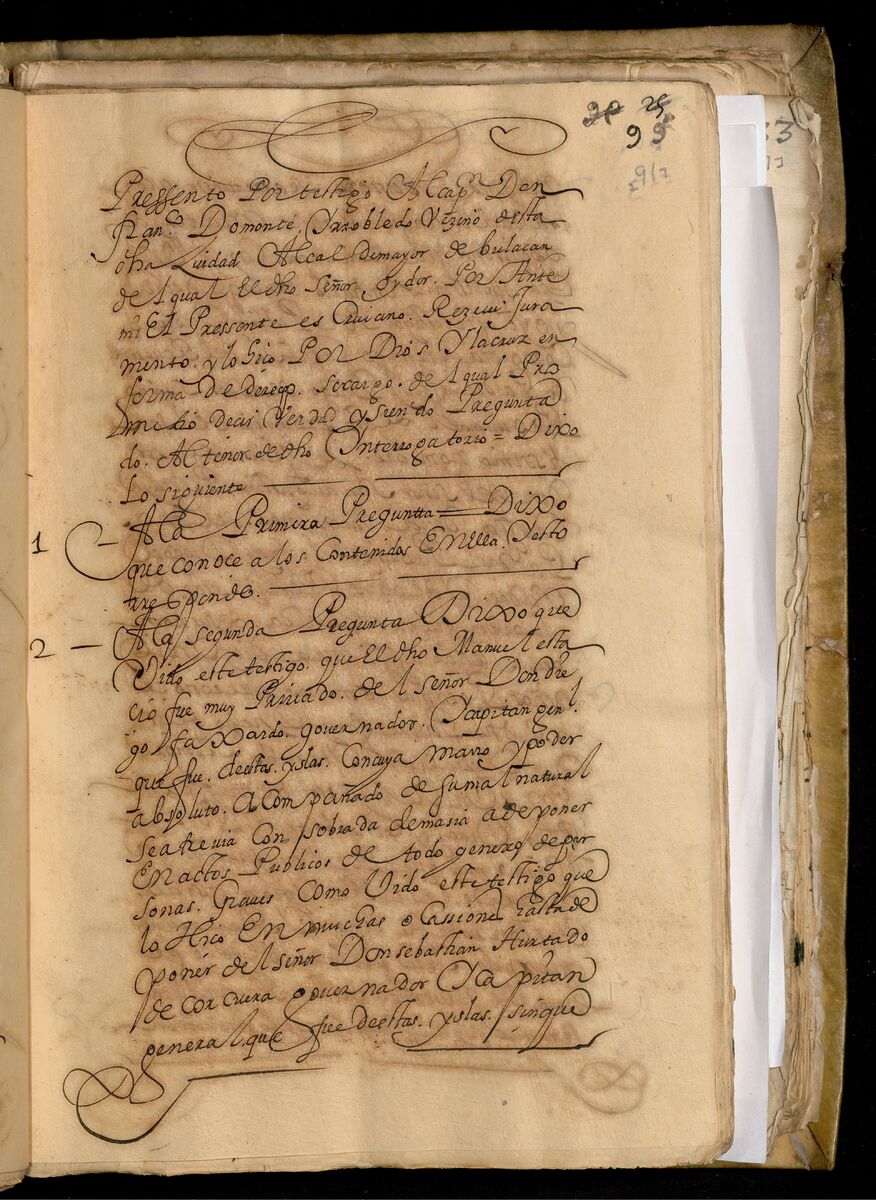 25
9 9
Pressento Por testigo Al capn Don
franco Domonte, Yrrobledo Vezino desta
dha Ziudad Alcaldemayor de bulacan
de lqual El dho Señor oydor. Por Ante
mi El Pressente escriuano. Rezeui Jura
mento. y lo hiço POR Dios Ylacruz en
forma de derecho. socargo. de lqual Pro
metió decir Verdad ysiendo Pregunta
do. Al tenor de dho Ynterrogatorio = Dixo
Lo siguiente
1 — Ala Primera Preguntta = Dixo
que conoce a los Contenidos En ella. Yesto
rresponde.
2 — Ala segunda Pregunta Dixo que
Vido este testigo. que El dho Manuel esta
cio fue muy Priuado. de l señor Don die
go faxardo. gouernador. Ycapitan genl.
que fue. destas. yslas. Concuya mano ypoder
absoluto. acompañado de sumal natural
seatreuia con sobrada demasia adeponer
En actos Publicos de todo genero deper
sonas. Graues como Vido este testigo que
lo Hiço En muchas ocassiones hasta de
ponér del señor Don sebasthian Hurtado
de corcuera gouernador Ycapitan
general. que fue destas. yslas. sinque